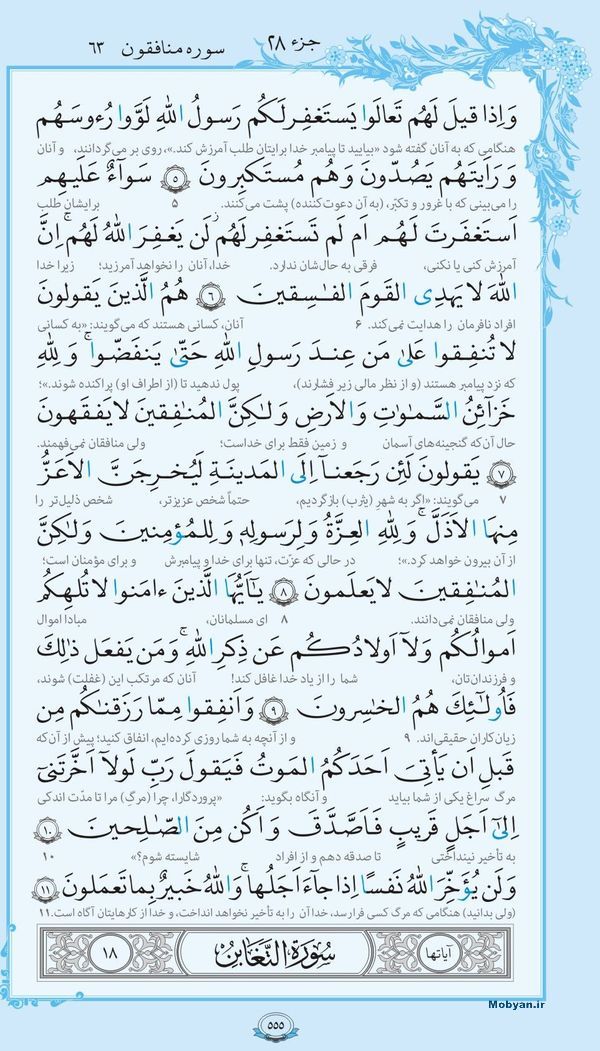 جزء ۲۸
سوره منافقون ۶۳
وَاِذا قیلَ لَهُم تَعالَوا یَستَغفِرلَکُم رَسولُ اللهِ لَوَّوا رُءوسَهُم
هنگامی که به آنان گفته شود «بیایید تا پیامبر خدا برایتان طلب آمرزش کند.»، روی بر می‌گردانند، و آنان
وَرَاَیتَهُم یَصُدّونَ وَهُم مُستَکبِرونَ ۵ سَوآءٌ عَلَیهِم
را می‌بینی که با غرور و تکبّر، (به آن دعوت‌کننده) پشت می‌کنند. ۵ برایشان طلب
اَستَغفَرتَ لَهُم اَم لَم تَستَغفِرلَهُم لَن یَغفِرَ اللهُ لَهُم اِنَّ
آمرزش کنی یا نکنی، فرقی به حال‌شان ندارد. خدا، آنان را نخواهد آمرزید؛ زیرا خدا
اللهَ لا یَهدِی القَومَ الفٰسِقینَ ۶ هُمُ الَّذینَ یَقولونَ
افراد نافرمان را هدایت نمی‌کند. ۶ آنان، کسانی هستند که می‌گویند: «به کسانی
لا تُنفِقوا عَلىٰ مَن عِندَ رَسولِ اللهِ حَتّىٰ یَنفَضّوا وَلِلّهِ
که نزد پیامبر هستند (و از نظر مالی زیر فشارند)، پول ندهید تا (از اطراف او) پراکنده شوند.»؛
خَزآئِنُ السَّمٰوٰتِ وَالاَرضِ وَلٰکِنَّ المُنٰفِقینَ لا یَفقَهونَ
حال آن‌که گنجینه‌های آسمان و زمین فقط برای خداست؛ ولی منافقان نمی‌فهمند.
۷ یَقولونَ لَئِن رَجَعنآ اِلَى المَدینَةِ لَیُخرِجَنَّ الاَعَزُّ
۷ می‌گویند: «اگر به شهر (یثرب) بازگردیم، حتماً شخص عزیزتر، شخص ذلیل‌تر را
مِنهَا الاَذَلَّ وَلِلّهِ العِزَّةُ وَلِرَسولِهٖ وَلِلمُؤمِنینَ وَلٰکِنَّ
از آن بیرون خواهد کرد.»؛ در حالی که عزّت، تنها برای خدا و پیامبرش و برای مؤمنان است؛
المُنٰفِقینَ لا یَعلَمونَ ۸ یٰۤاَیُّهَا الَّذینَ ءامَنوا لا تُلهِکُم
ولی منافقان نمی‌دانند. ۸ ای مسلمانان، مبادا اموال
اَموالُکُم وَلآ اَولادُکُم عَن ذِکرِ اللهِ وَمَن یَفعَل ذٰلِكَ
و فرزندان‌تان، شما را از یاد خدا غافل کند! آنان که مرتکب این (غفلت) شوند،
فَاُولٰئِكَ هُمُ الخٰسِرونَ ۹ وَاَنفِقوا مِمّا رَزَقنٰکُم مِن
زیان‌کاران حقیقی‌اند. ۹ و از آنچه به شما روزی کرده‌ایم، انفاق کنید؛ پیش از آن‌که
قَبلِ اَن یَأتِیَ اَحَدَکُمُ المَوتُ فَیَقولَ رَبِّ لَولآ اَخَّرتَنی
مرگ سراغ یکی از شما بیاید و آنگاه بگوید: «پروردگارا، چرا (مرگِ) مرا تا مدّت اندکی
اِلىٰۤ اَجَلٍ قَریبٍ فَاَصَّدَّقَ وَاَکُن مِنَ الصّٰلِحینَ ۱۰
به تأخیر نینداختی تا صدقه دهم و از افراد شایسته شوم؟» ۱۰
وَلَن یُؤَخِّرَ اللهُ نَفسًا اِذا جآءَ اَجَلُها وَاللهُ خَبیرٌ بِما تَعمَلونَ ۱۱
(ولی بدانید) هنگامی که مرگ کسی فرا رسد، خدا آن را به تأخیر نخواهد انداخت، و خدا از کارهایتان آگاه است. ۱۱
آیاتها سُورَةُ التَّغَابُنِ ۱۸
Mobyan.ir
۵۵۵